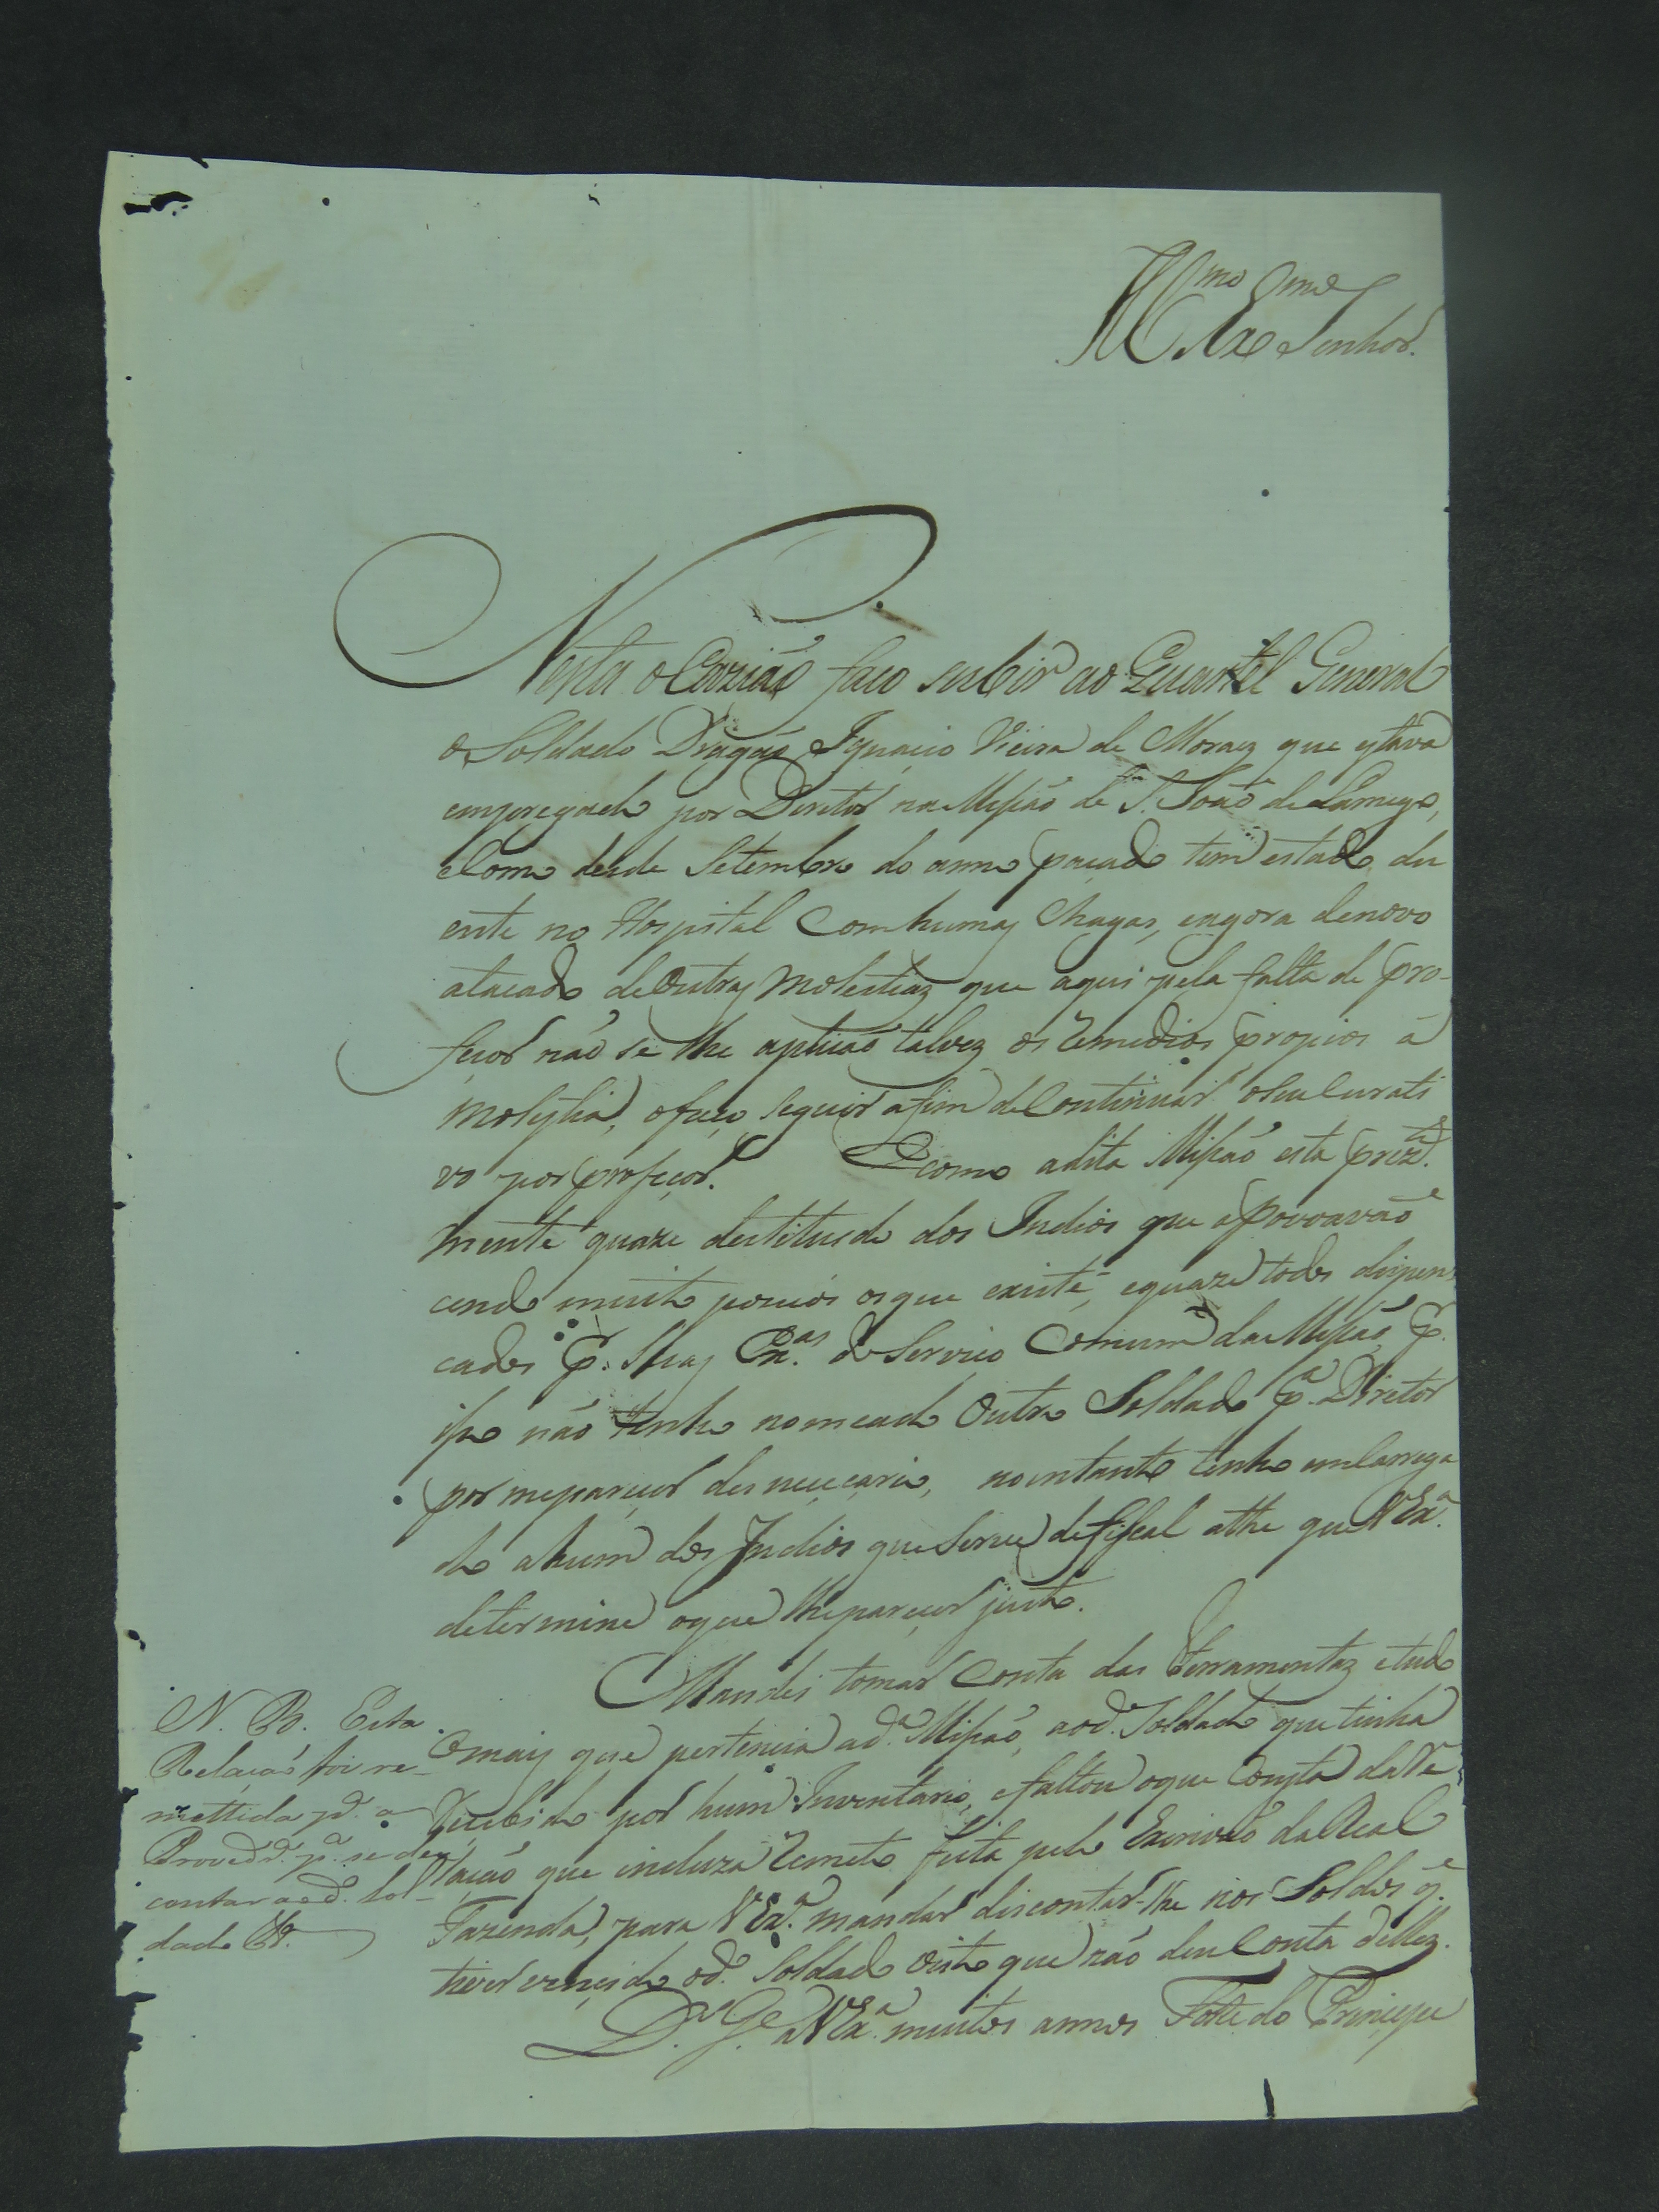 Ill.mo Ex.mo Senhor.
Nesta oCazião faco subir ao Quartel General
o Soldado Dragão Ignacio Vieira de Moraez que estava
empregado por Diretor na Missão de S. João de Lamego,
eComo desde Setembro do anno pacado tem estado du
ente no Hospital Com humas Chagas, eagora denovo
atacado deOutras Molestiaz que aqui pela falta de pro-
feçor não se lhe aplicão talvez os remedios propios á
Molestia, ofaço seguir afim deContinuar oseu Curati
vo por profeçor. Ecomo adita Missão esta prez.te
mente quaze destituida dos Indios que apovoavão
cendo muito poucos osque existe, equaze todos dispen-
cados p.r Suas Ex.as do Servico Comum da Missão, p.r
isso não tenho nomeado Outro Soldado p.a Diretor
por meparecer desneceçario, noentanto tenho emCarrega
do ahum dos Indios queServe defiscal athe queVEx.a
determine oque lheparecer justo.
Mandei tomar Conta das ferramentaz etudo
omais que pertencia ad.a Missão, aod.o Soldado quetinha
recebido por hum Inventario, efaltou oque Consta daRe
lação que incluza remeto feita pelo Escrivão daReal
Fazenda, para VEx.a mandar discontar-lhe nos Soldos q.e
tiver vencido od.o Soldado visto que não deu Conta dellez.
D.s G.e aVEx.a muitos annos Forte do Principe
N. B. Esta
Relação foi re-
mettida p.a a
Proved.a p.a se des
contar aod.o Sol-
dado Etc.